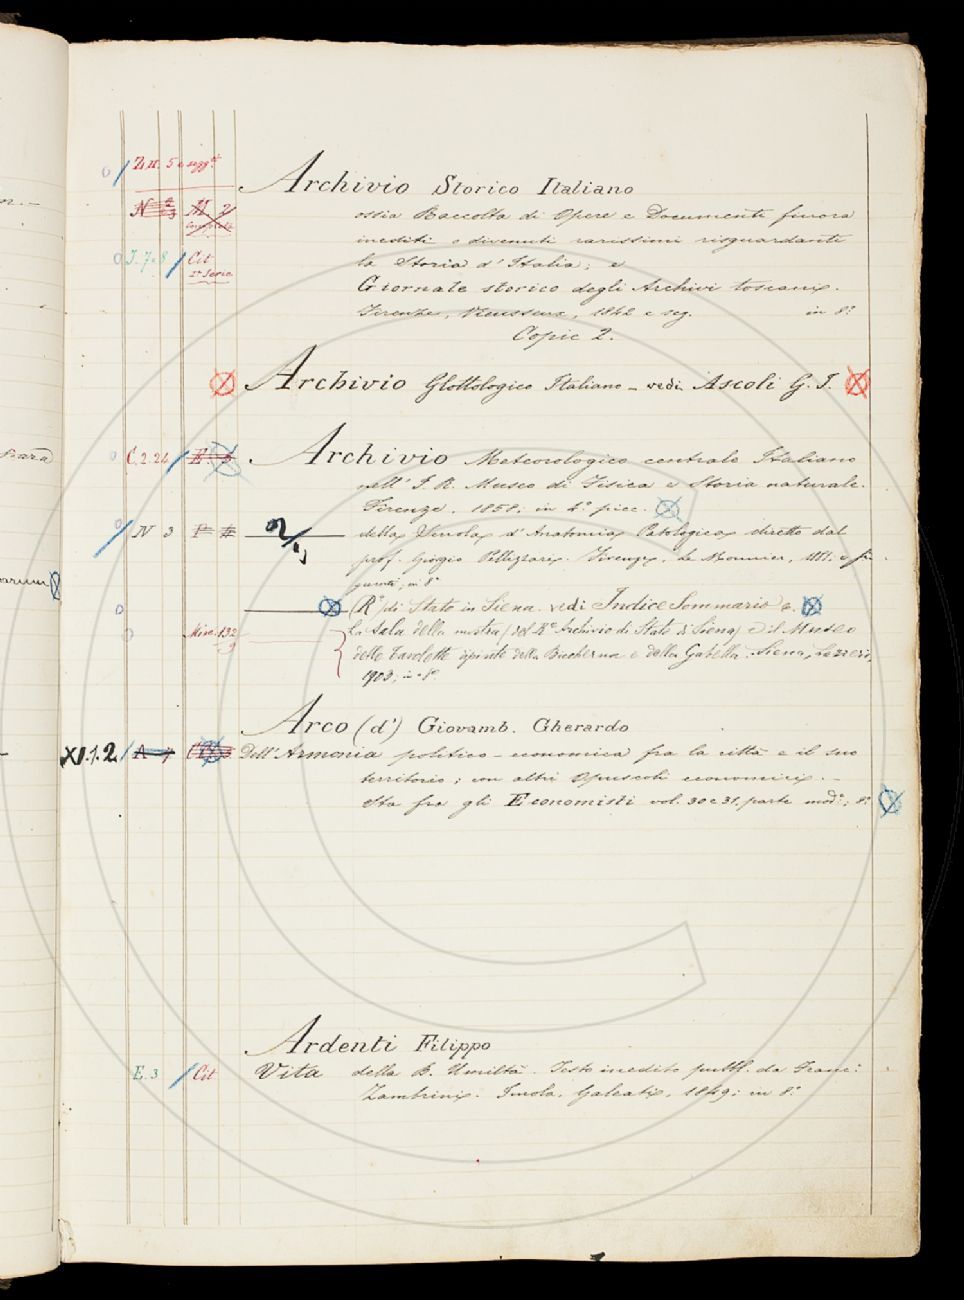 Z.II. 5 e segg.ti
Archivio Storico Italiano
N M 2
ossia Raccolta di Opere e Documenti finora
inediti o divenuti rarissimi risguardanti
I. 7.8 Cit
1a Serie
la Storia d'Italia; e
Giornale storico degli Archivi toscani.
Firenze, Vieusseux, 1842 e seg. in 8.°
Copie 2.
Archivio Glottologico Italiano - vedi Ascoli G. I.
C.2.26 E. Archivio Meteorologico centrale Italiano
nell' I. R. Museo di Fisica e Storia naturale.
Firenze. 1858; in 4.° picc.
N 3 della Scuola d'Anatomia Patologica diretto dal
prof. Giorgio Pellizzari. Firenze, Le Monnier, 1881 e se-
guenti; in 8°
(R.°) di Stato in Siena. vedi Indice Sommario &.
Misc. 132
9
La Sala della mostra (del R.° Archivio di Stato di Siena) e il Museo
delle Tavolette dipinte della Biccherna e della Gabella. Siena, Lazzeri,
1903, in 8°
Arco (d') Giovamb. Gherardo
XI.1.2 A 7 Dell'Armonia politico-economica fra la città e il suo
territorio; con altri Opuscoli economici. -
Sta fra gli Economisti vol. 30 e 31, parte mod.a; 8.°
Ardenti Filippo
E.3 Cit Vita della B. Umiltà. Testo inedito pubbl. da Franc:
Zambrini. Imola, Galeati, 1849; in 8.°